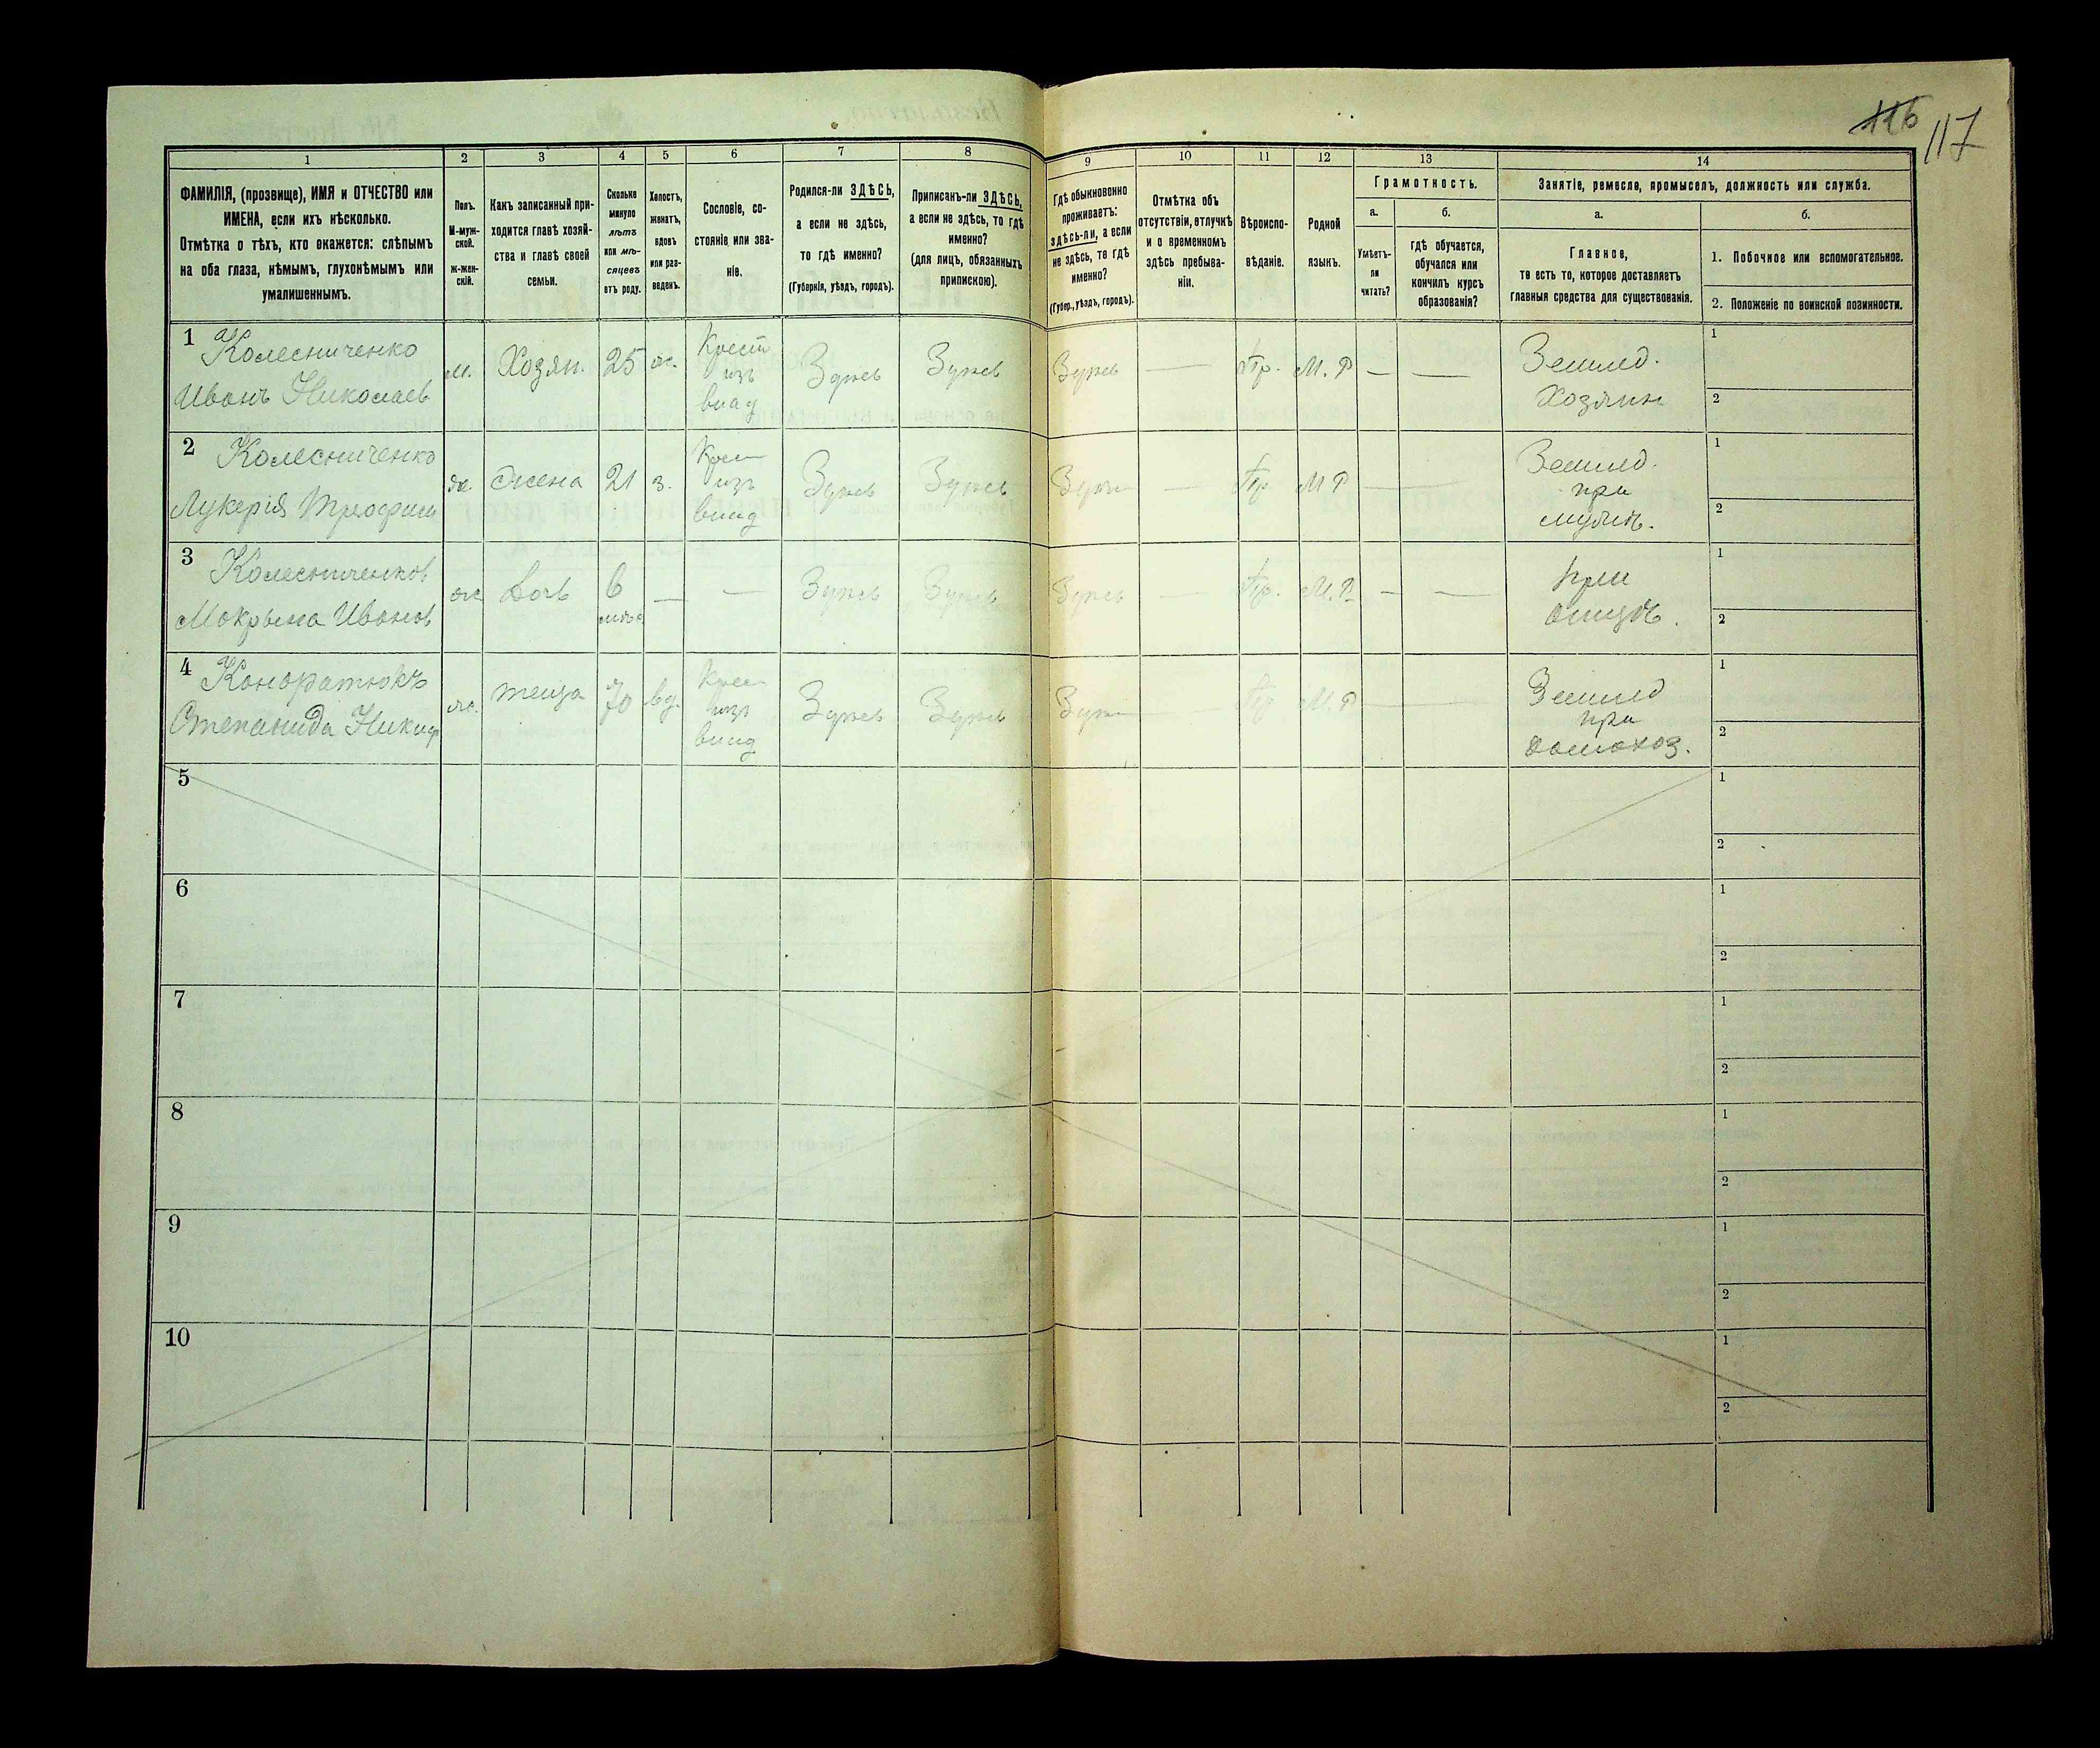 116 117
1 2 3 4 5 6 7 8 9 10 11 12 13 14
ФАМИЛІЯ, (прозвище), ИМЯ и ОТЧЕСТВО или
ИМЕНА, если ихъ нѣсколько.
Отмѣтка о тѣхъ, кто окажется: слѣпымъ
на оба глаза, нѣмымъ, глухонѣмымъ или
умалишеннымъ.
Полъ.
М-муж-
ской.
ж-жен-
скій.
Какъ записанный при-
ходится главѣ хозяй-
ства и главѣ своей
семьи.
Сколько
минуло
лѣтъ
или мѣ-
сяцевъ
отъ роду.
Холостъ,
женатъ,
вдовъ
или раз-
веденъ.
Сословіе, со-
стояніе или зва-
ніе.
Родился-ли ЗДѢСЬ,
а если не здѣсь,
то гдѣ именно?
(Губернія, уѣздъ, городъ).
Приписанъ-ли ЗДѢСЬ,
а если не здѣсь, то гдѣ
именно?
(для лицъ, обязанныхъ
припискою).
Гдѣ обыкновенно
проживаетъ:
здѣсь-ли, а если
не здѣсь, то гдѣ
именно?
(Губер., уѣздъ, городъ).
Отмѣтка объ
отсутствіи, отлучкѣ
и о временномъ
здѣсь пребыва-
ніи.
Вѣроиспо-
вѣданіе.
Родной
языкъ.
Грамотность.
а. б.
Умѣетъ-
ли
читать?
гдѣ обучается,
обучался или
кончилъ курсъ
образованія?
Занятіе, ремесло, промыселъ, должность или служба.
а. б.
Главное,
то есть то, которое доставляетъ
главныя средства для существованія.
1. Побочное или вспомогательное.
2. Положеніе по воинской повинности.
1 Колесниченко
Иванъ Николаев
м. Хозяин. 25 ж.
Крест
изъ
влад
Здѣсь Здѣсь Здѣсь — Пр. М. Р — —
Землед.
Хозяин
1
2
2 Колесниченко
Лукерія Трофим
ж. жена 21 з.
Крес
изъ
влад
Здѣсь Здѣсь Здѣсь — Пр М Р —
Землед.
при
мужѣ.
1
2
3 Колесниченков
Мокрына Иванов
ж дочь 6
мѣс
— — Здѣсь Здѣсь Здѣсь — Пр. М. Р — —
при
отцѣ.
1
2
4 Кондратюкъ
Степанида Никиф
ж. теща 70 вд.
Крес
изъ
влад
Здѣсь Здѣсь Здѣсь — Пр М. Р —
Землед
при
домохоз.
1
2
5
1
2
6
1
2
7
1
2
8
1
2
9
1
2
10
1
2